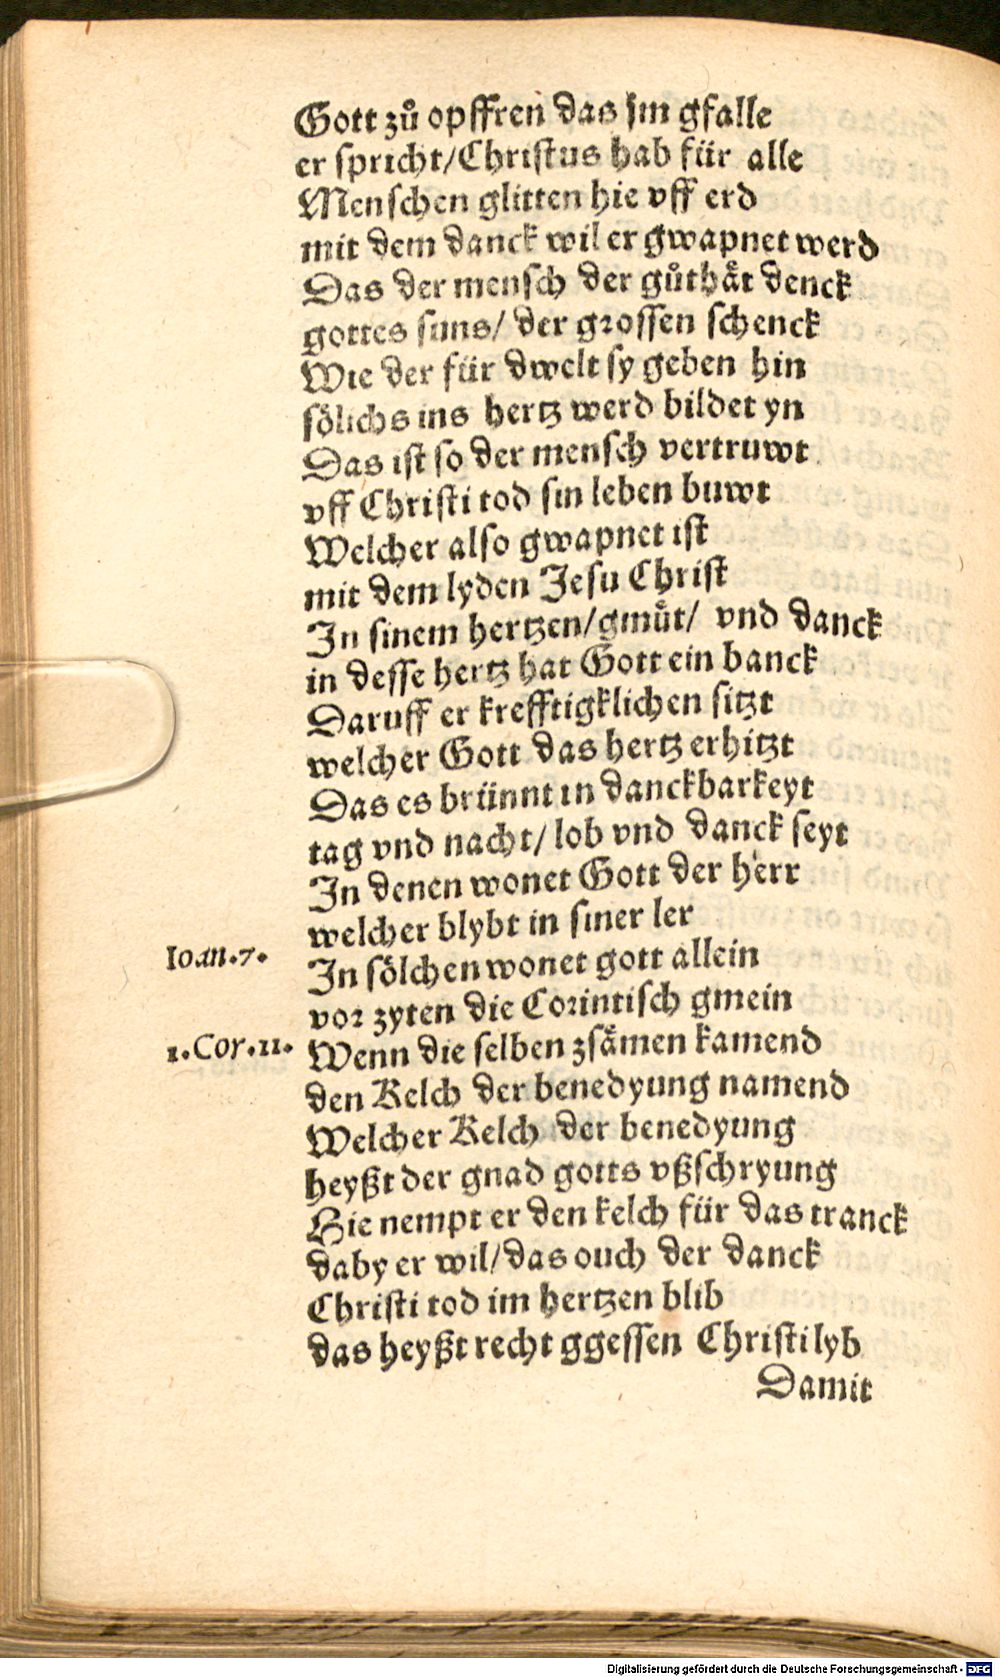 Gott zů opffren das jm gfalle
er spricht/Christus hab für alle
Menschen glitten hie vff erd
mit dem danck wil er gwapnet werd
Das der mensch der gůthåt denck
gottes suns/ der grossen schenck
Wie der für dwelt sy geben hin
sölichs ins hertz werd bildet yn
Das ist so der mensch vertruwt
vff Christi tod sin leben buwt
Welcher also gwapnet ist
mit dem lyden Jesu Christ
In sinem hertzen/gmůt/ vnd danck
in desse hertz hat Gott ein banck
Daruff er krefftigklichen sitzt
welcher Gott das hertz erhitzt
Das es brünnt in danckbarkeyt
tag vnd nacht/ lob vnd danck seyt
In denen wonet Gott der herr
welcher blybt in siner ler
Ioan.7. In sölchen wonet gott allein
vor zyten die Corintisch gmein
1.Cor.11. Wenn die selben zsåmen kamend
den Kelch der benedyung namend
Welcher Kelch der benedyung
heyßt der gnad gotts vßschryung
Hie nempt er den kelch für das tranck
daby er wil/das ouch der danck
Christi tod im hertzen blib
das heyßt recht ggessen Christi lyb
Damit
Digitalisierung gefördert durch die Deutsche Forschungsgemeinschaft - DFG